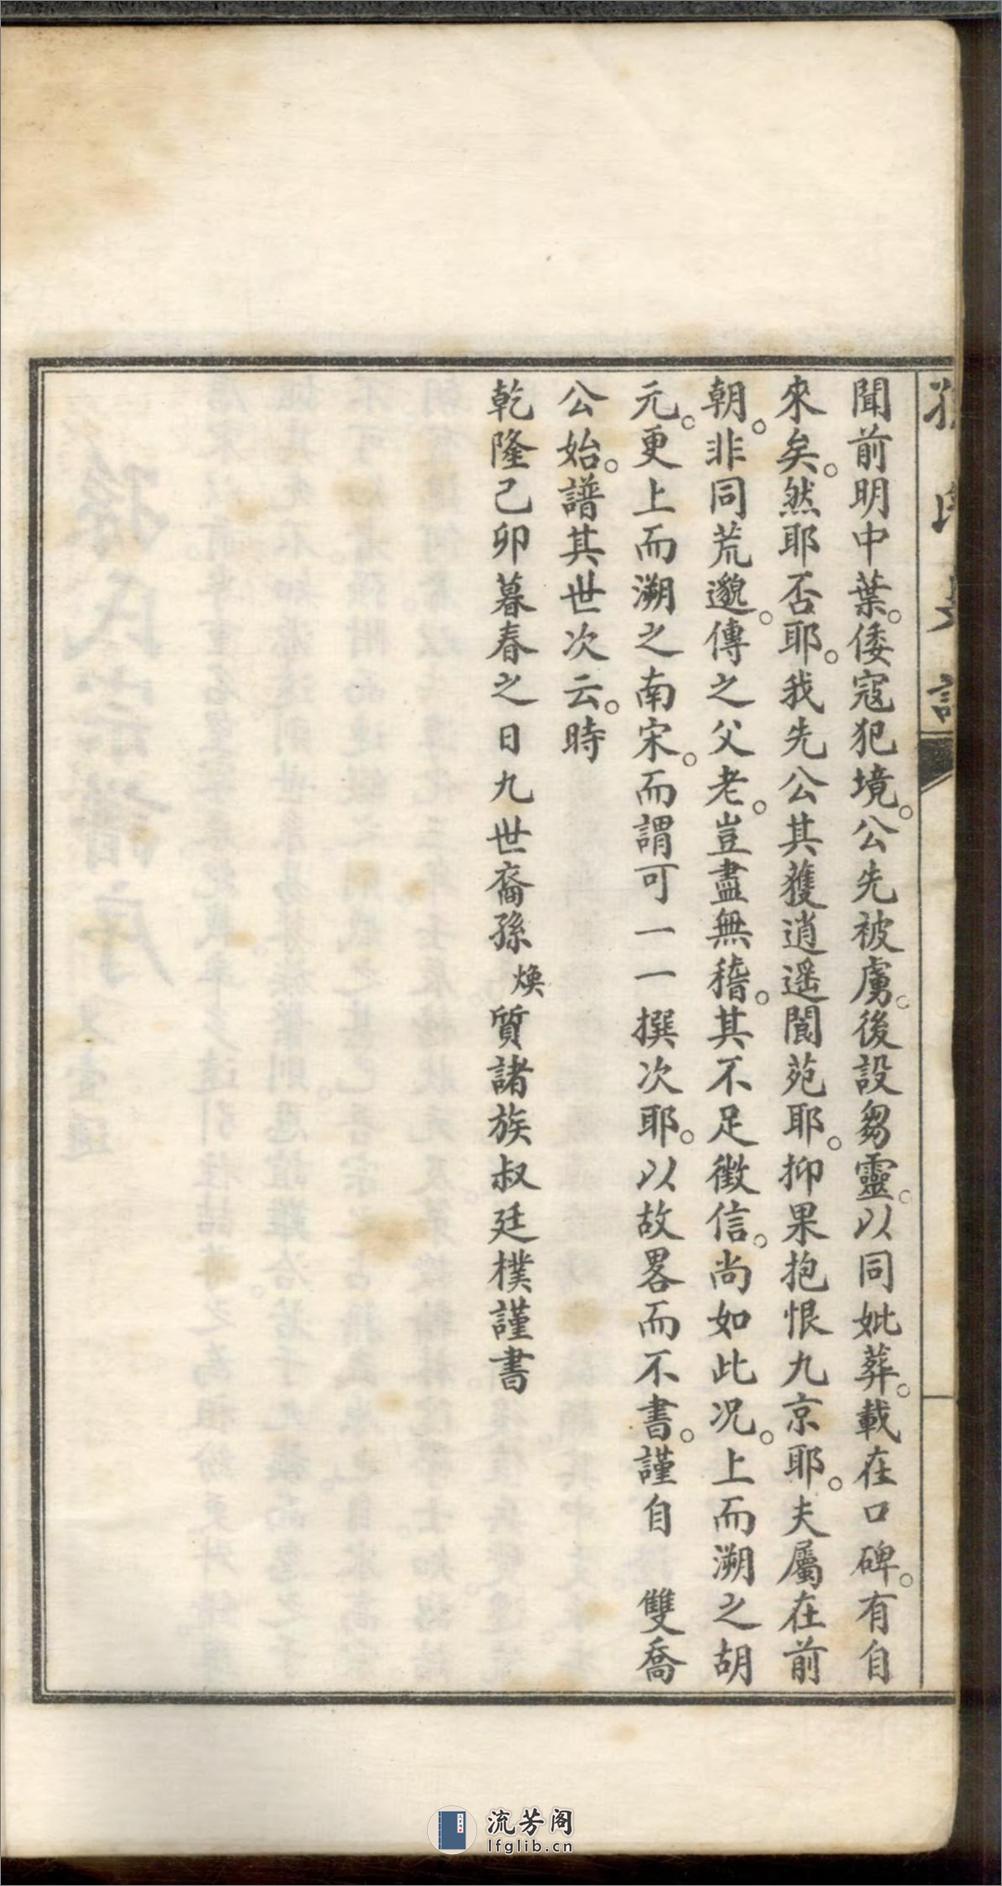 聞前明中葉。倭寇犯境。公先被虜。後設芻靈。以同妣葬。載在口碑。有自
來矣。然耶否耶。我先公其獲逍遥閬苑耶。抑果抱恨九京耶。夫屬在前
朝。非同荒邈。傳之父老。豈盡無稽。其不足徵信。尚如此况。上而溯之胡
元。更上而溯之南宋。而謂可一一撰次耶。以故畧而不書。謹自 雙喬
公始。譜其世次云。時
乾隆己卯暮春之日九世裔孫煥質諸族叔廷樸謹書
流芳阁
lfglib.cn